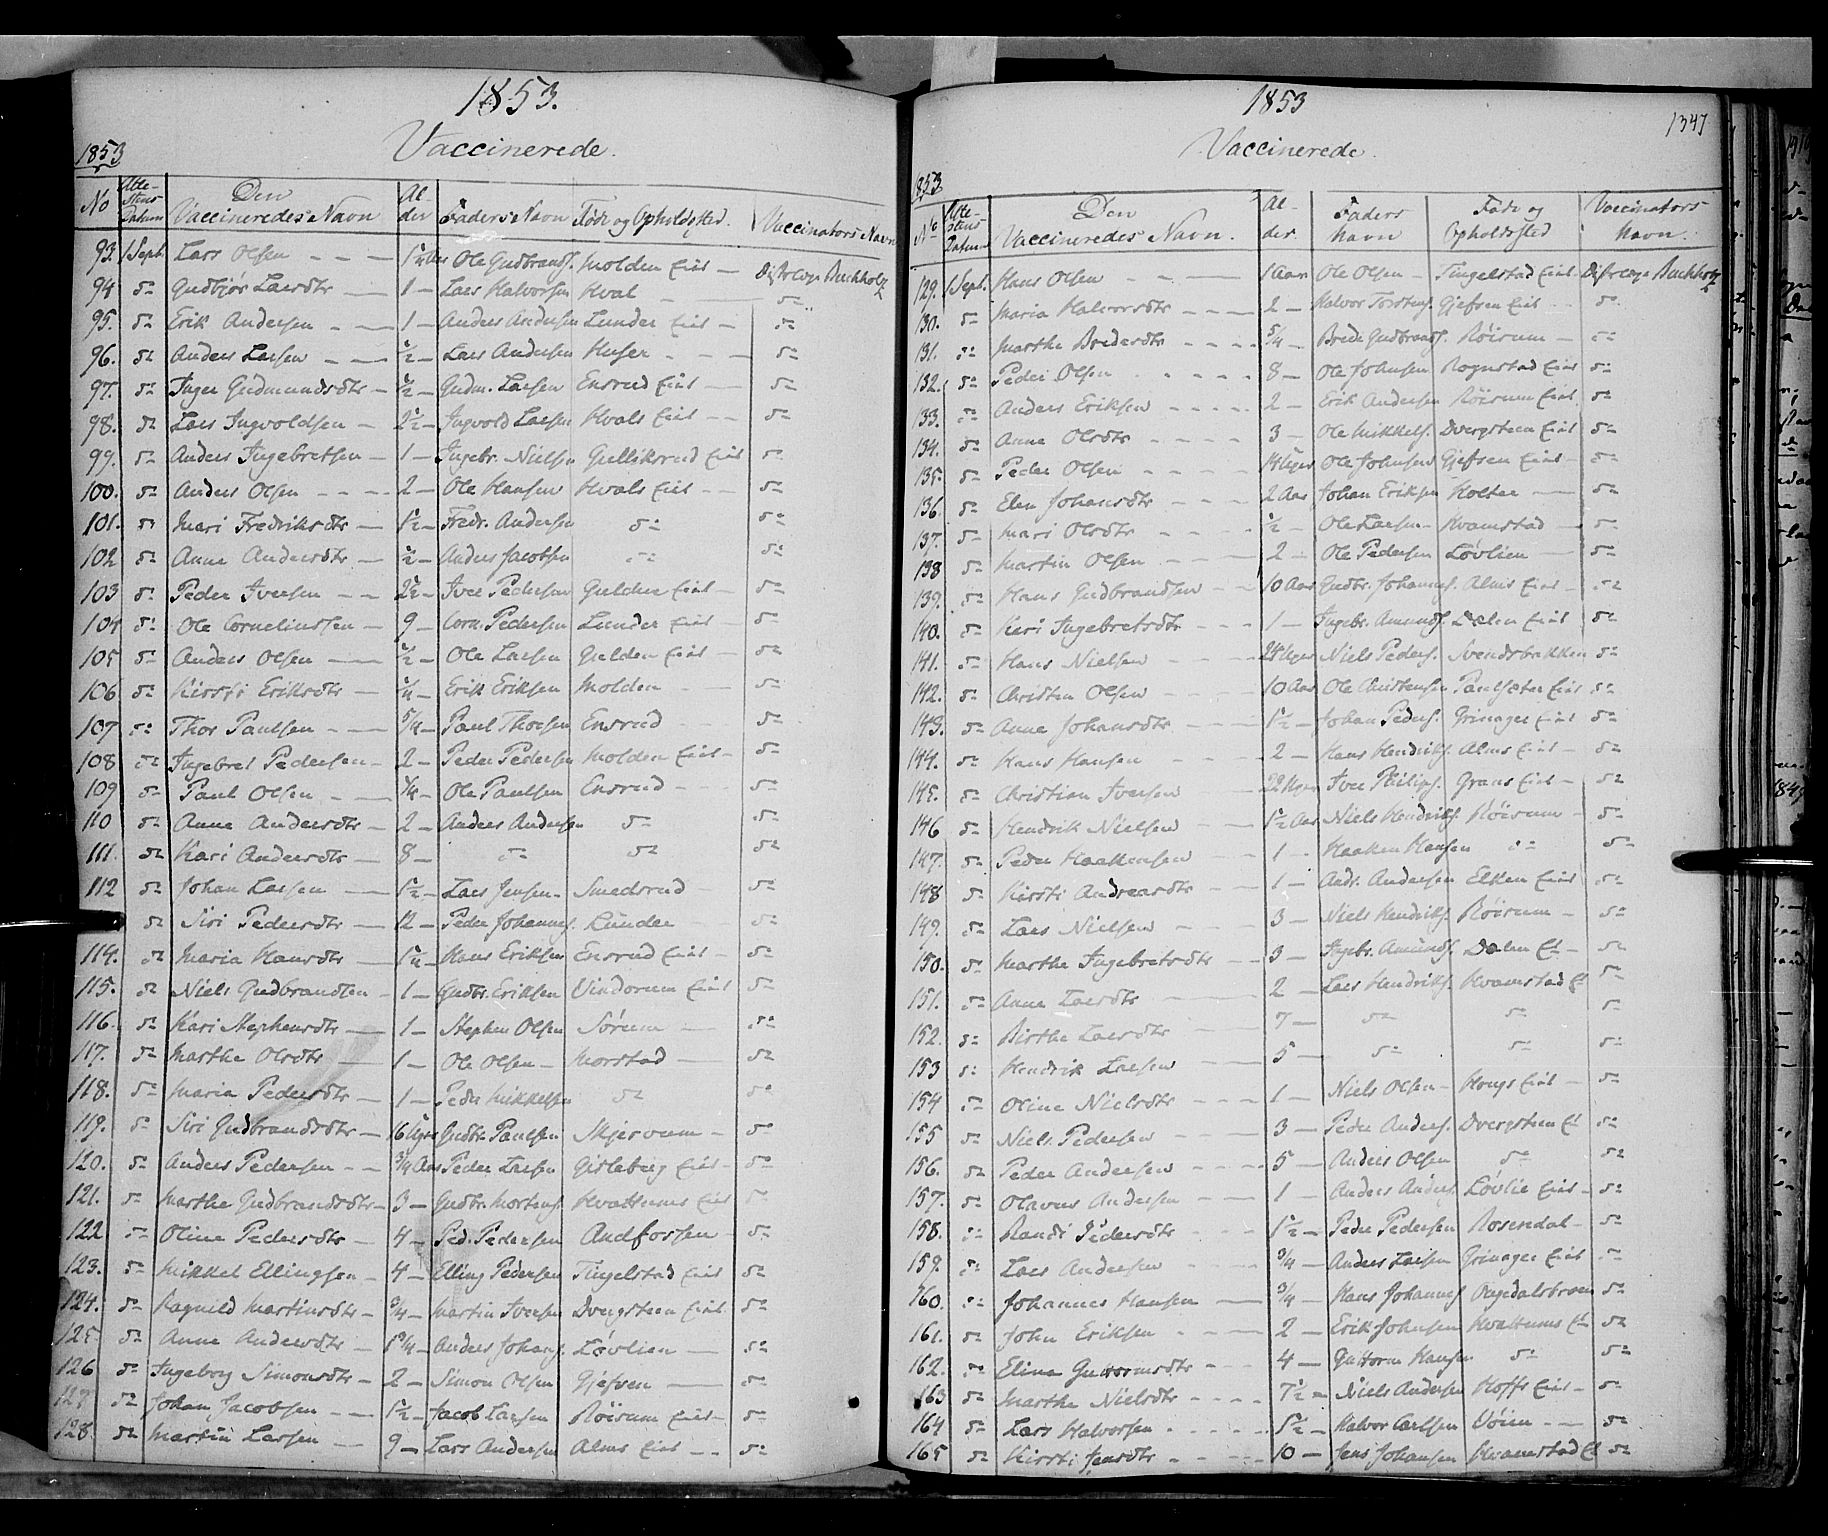 1853.
Vaccinerede.
1853
No Atte-stens Datum Den Vaccineredes Navn Al-der Faders Navn Føde og Opholdsted. Vaccinators Navn
93. 1 Sept. Lars Olsen 1½ Aar Ole Gudbrands. Molden Eiet Distrlæge Buchholz
94 do Gudbjør Larsdtr 1 Lars Halvorsen Hval do
95. do Erik Andersen 1 Anders Andersen Lunder Eiet do
96. do Anders Larsen ½ Lars Andersen Huser do
97. do Inger Gudmundsdtr ½ Gudm. Larsen Ensrud Eiet do
98. do Lars Ingvoldsen 2½ Ingvold Larsen Hvals Eiet do
99. do Anders Ingebretsen 1 Ingebr. Nielsen Gulliksrud Eiet do
100. do Anders Olsen 2 Ole Hansen Hvals Eiet do
101. do Mari Fredriksdtr 1½ Fredr. Andersen do do
102 do Anne Andersdtr ½ Anders Jacobsen do do
103 do Peder Iversen 2½ Iver Pedersen Gulden Eiet do
104 do Ole Corneliussen 9 Corn. Pedersen Lunder Eiet do
105 do Anders Olsen ½ Ole Larsen Gulden Eiet do
106 do Kirsti Eriksdtr ¼ Erik Eriksen Molden do
107 do Thor Paulsen 5/4 Paul Thorsen Ensrud do
108 do Ingebret Pedersen 2 Peder Pedersen Molden Eiet do
109 do Paul Olsen ¾ Ole Paulsen Ensrud do
110 do Anne Andersdtr 2 Anders Andersen do do
111. do Kari Andersdtr 8 do do do
112 do Johan Larsen 1½ Lars Jensen Smedsrud do
do Siri Pedersdtr 12 Peder Johannes. Lunder do
114. do Maria Hansdtr 1¼ Hans Eriksen Ensrud Eiet do
115. do Niels Gudbrandsen 1 Gudbr. Eriksen Vindorum Eiet do
116. do Kari Stephensdtr 1 Stephen Olsen Sørum do
117. do Marthe Olsdtr 1 Ole Olsen Morstad do
118. do Maria Pedersdtr 1 Peder Mikkelsen do do
119. do Siri Gudbrandsdtr 16 Uger Gudbr. Paulsen Skjervum do
120. do Anders Pedersen ¾ Aar Peder Larsen Gisleberg Eiet do
121. do Marthe Gudbrandsdtr 3 Gudbr. Mortens. Hvattums Eiet do
122 do Oline Pedersdtr 4 Ped. Pedersen Andfossen do
123. do Mikkel Ellingsen 4 Elling Pedersen Tingelstad Eiet do
124. do Ragnild Martinsdtr ¾ Martin Iversen Dvergsteen Eiet do
125. do Anne Andersdtr 1¾ Anders Johans. Løvlien do
126 do Ingeborg Simonsdtr 2 Simon Olsen Gjefsen do
127 do Johan Jacobsen 1½ Jacob Larsen Røisum Eiet do
128. do Martin Larsen 9 Lars Andersen Alms Eiet do
1853
1347
Vaccinerede.
1853
No Atte-stens Datum Den Vaccineredes Navn. Al-der. Faders Navn Føde og Opholdsted Vaccinators Navn.
129. 1 Sept. Hans Olsen 1 Aar Ole Olsen Tingelstad Eiet Distrlæge Buchholz
130. do Maria Halvorsdtr 2 Halvor Torstens. Gjefsen Eiet do
131. do Marthe Bredesdtr 5/4 Brede Gudbrands. Røisum do
132. do Peder Olsen 8 Ole Johnsen Rognstad Eiet do
133. do Anders Eriksen 2 Erik Andersen Røisum Eiet do
134. do Anne Olsdtr 3 Ole Mikkels. Dvergsteen Eiet do
135. do Peder Olsen 14 Uger Ole Johnsen Gjefsen Eiet do
136. do Elen Johansdtr 2 Aar Johan Eriksen Holter do
137. do Mari Olsdtr ½ Ole Larsen Hvamstad do
138 do Martin Olsen 2 Ole Pedersen Løvlien do
139. do Hans Gudbrandsen 10 Aar Gudbr. Johannes. Alms Eiet do
140. do Kari Ingebretsdtr 1 Ingebr. Amunds. Dælen Eiet do
141. do Hans Nielsen 24 Uger Niels Peders. Svendsbakken do
142. do Christen Olsen 10 Aar Ole Christensen Paulsæter Eiet do
143. do Anne Johansdtr 1½ Johan Peders. Grinager Eiet do
144. do Hans Hansen 2 Hans Hendriks. Alms Eiet do
145. do Christian Iversen 22 Uger Iver Philips. Grans Eiet do
146 do Hendrik Nielsen 1½ Aar Niels Hendriks. Røisum do
147. do Peder Haakensen 1 Haaken Hansen do do
148 do Kirsti Andreasdtr 1 Andr. Andersen Elken Eiet do
149. do Lars Nielsen 3 Niels Hendriks. Røisum do
150. do Marthe Ingebretsdtr 3 Ingebr. Amunds. Dælen Et do
151. do Anne Larsdtr 2 Lars Hendriks. Hvamstad Et do
152. do Birthe Larsdtr 7 do do do
153 do Hendrik Larsen 5 do do do
154 do Oline Nielsdtr 1 Niels Olsen Hougs Eiet do
155 do Niels Pedersen 3 Peder Anders. Dvergsteen Et do
156. do Peder Andersen 5 Anders Olsen do do
157. do Olavus Andersen 1 Anders Anders. Løvlie Eiet do
158. do Randi Pedersdtr 1½ Peder Pedersen Rosendal do
159. do Lars Andersen ¾ Anders Larsen Grinager Eiet do
160. do Johannes Hansen ¾ Hans Johannes. do
161. do John Eriksen 2 Erik Johnsen Hvattums Et do
162. do Eline Guttormsdtr 4 Guttorm Hansen do do
163 do Marthe Nielsdtr 7½ Niels Andersen Hoffs Eiet do
164 do Lars Halvorsen 1½ Halvor Carlsen Vøien do
165 do Kirsti Jensdtr 10 Jens Johansen Hvamstad Et do